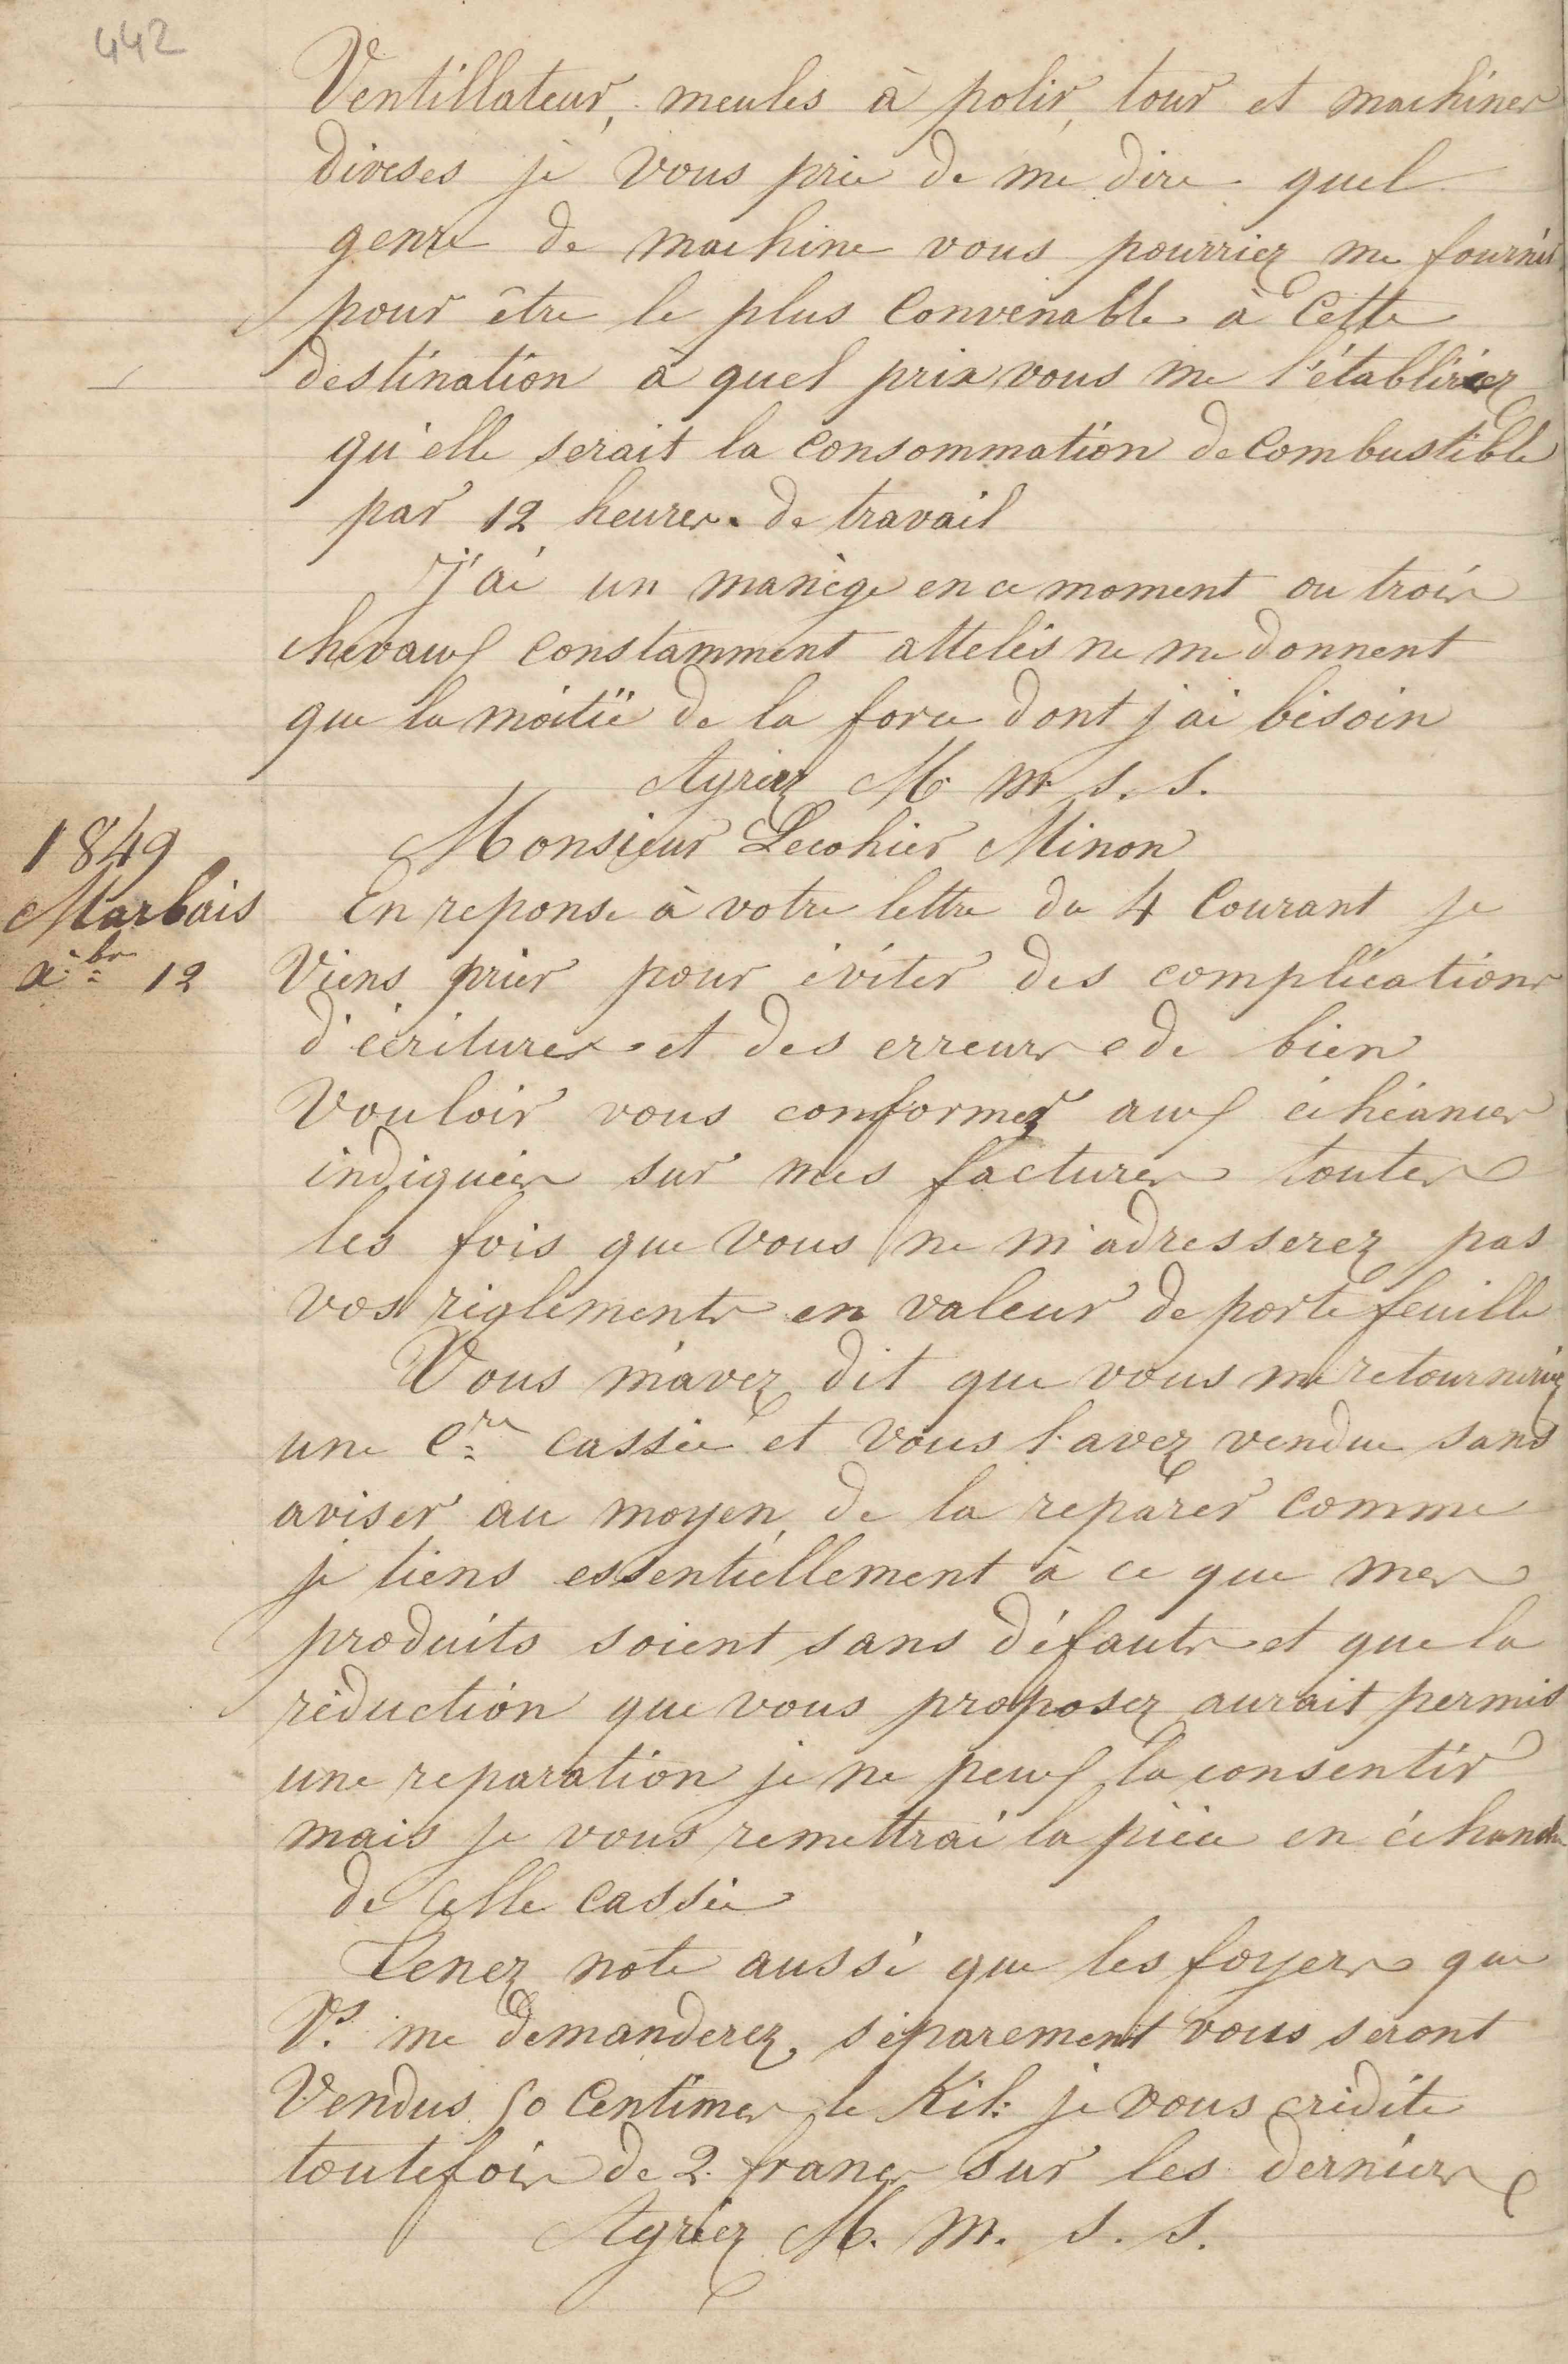 442
Ventillateur, meules à polir, tour et machines
diverses je vous prie de me dire quel
genre de machine vous pourriez me fournir
pour être le plus convenable à cette
destination à quel prix vous me l'établiriez
qu'elle serait la consommation de combustible
par 12 heures de travail
J'ai un manège en ce moment ou trois
chevaux constamment attelés ne me donnent
que la moitié de la force dont j'ai bésoin
Agréez M. m. s. s.
Monsieur Lecohier Minon
1849
Marbais
Xbre 12
En reponse à votre lettre du 4 Courant je
Viens prier pour éviter des complications
d'écritures et des erreurs de bien
Vouloir vous conformer aux échéances
indiquées sur mes factures toutes
les fois que vous ne m'adresserez pas
vos réglements en valeur de porte feuille
Vous m'avez dit que vous me retourneriez
une Cre cassée et vous l'avez vendue sans
aviser au moyen de la reparer comme
je tiens essentiellement à ce que mes
produits soient sans défauts et que la
réduction que vous proposez aurait permis
une reparation je ne peux la consentir
mais je vous remettrai la pièce en échande
de celle cassée
Tenez note aussi que les foyers que
Vs. me demanderez séparement vous seront
Vendus 50 Centimes le Kil: je vous crédite
toutefois de 2 francs sur les derniers
Agréez M. m. s. s.